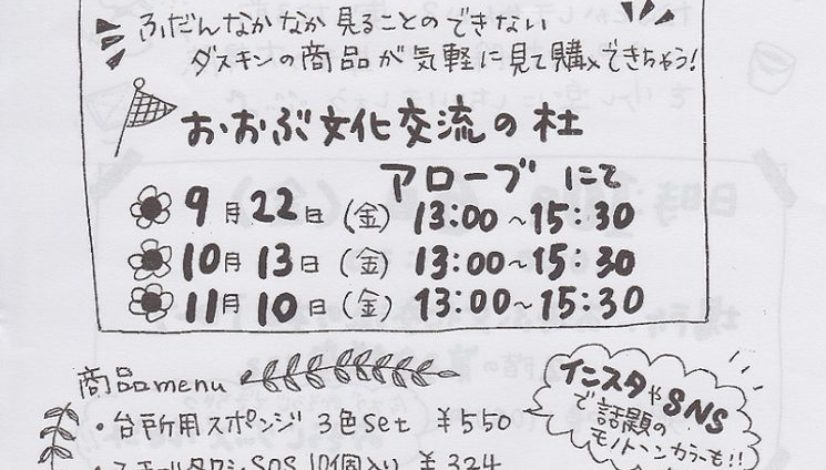 ふだんなかなか見ることのできない
ダスキンの商品が気軽に見て購入できちゃう!
おおぶ文化交流の杜
アローブ にて
9月22日(金) 13:00~15:30
10月13日(金) 13:00~15:30
11月10日(金) 13:00~15:30
商品menu
・台所用スポンジ 3色Set ¥550
・スチールタワシSOS 10個入り ¥324
インスタやSNS
で話題の
モノトーンカラーも!!